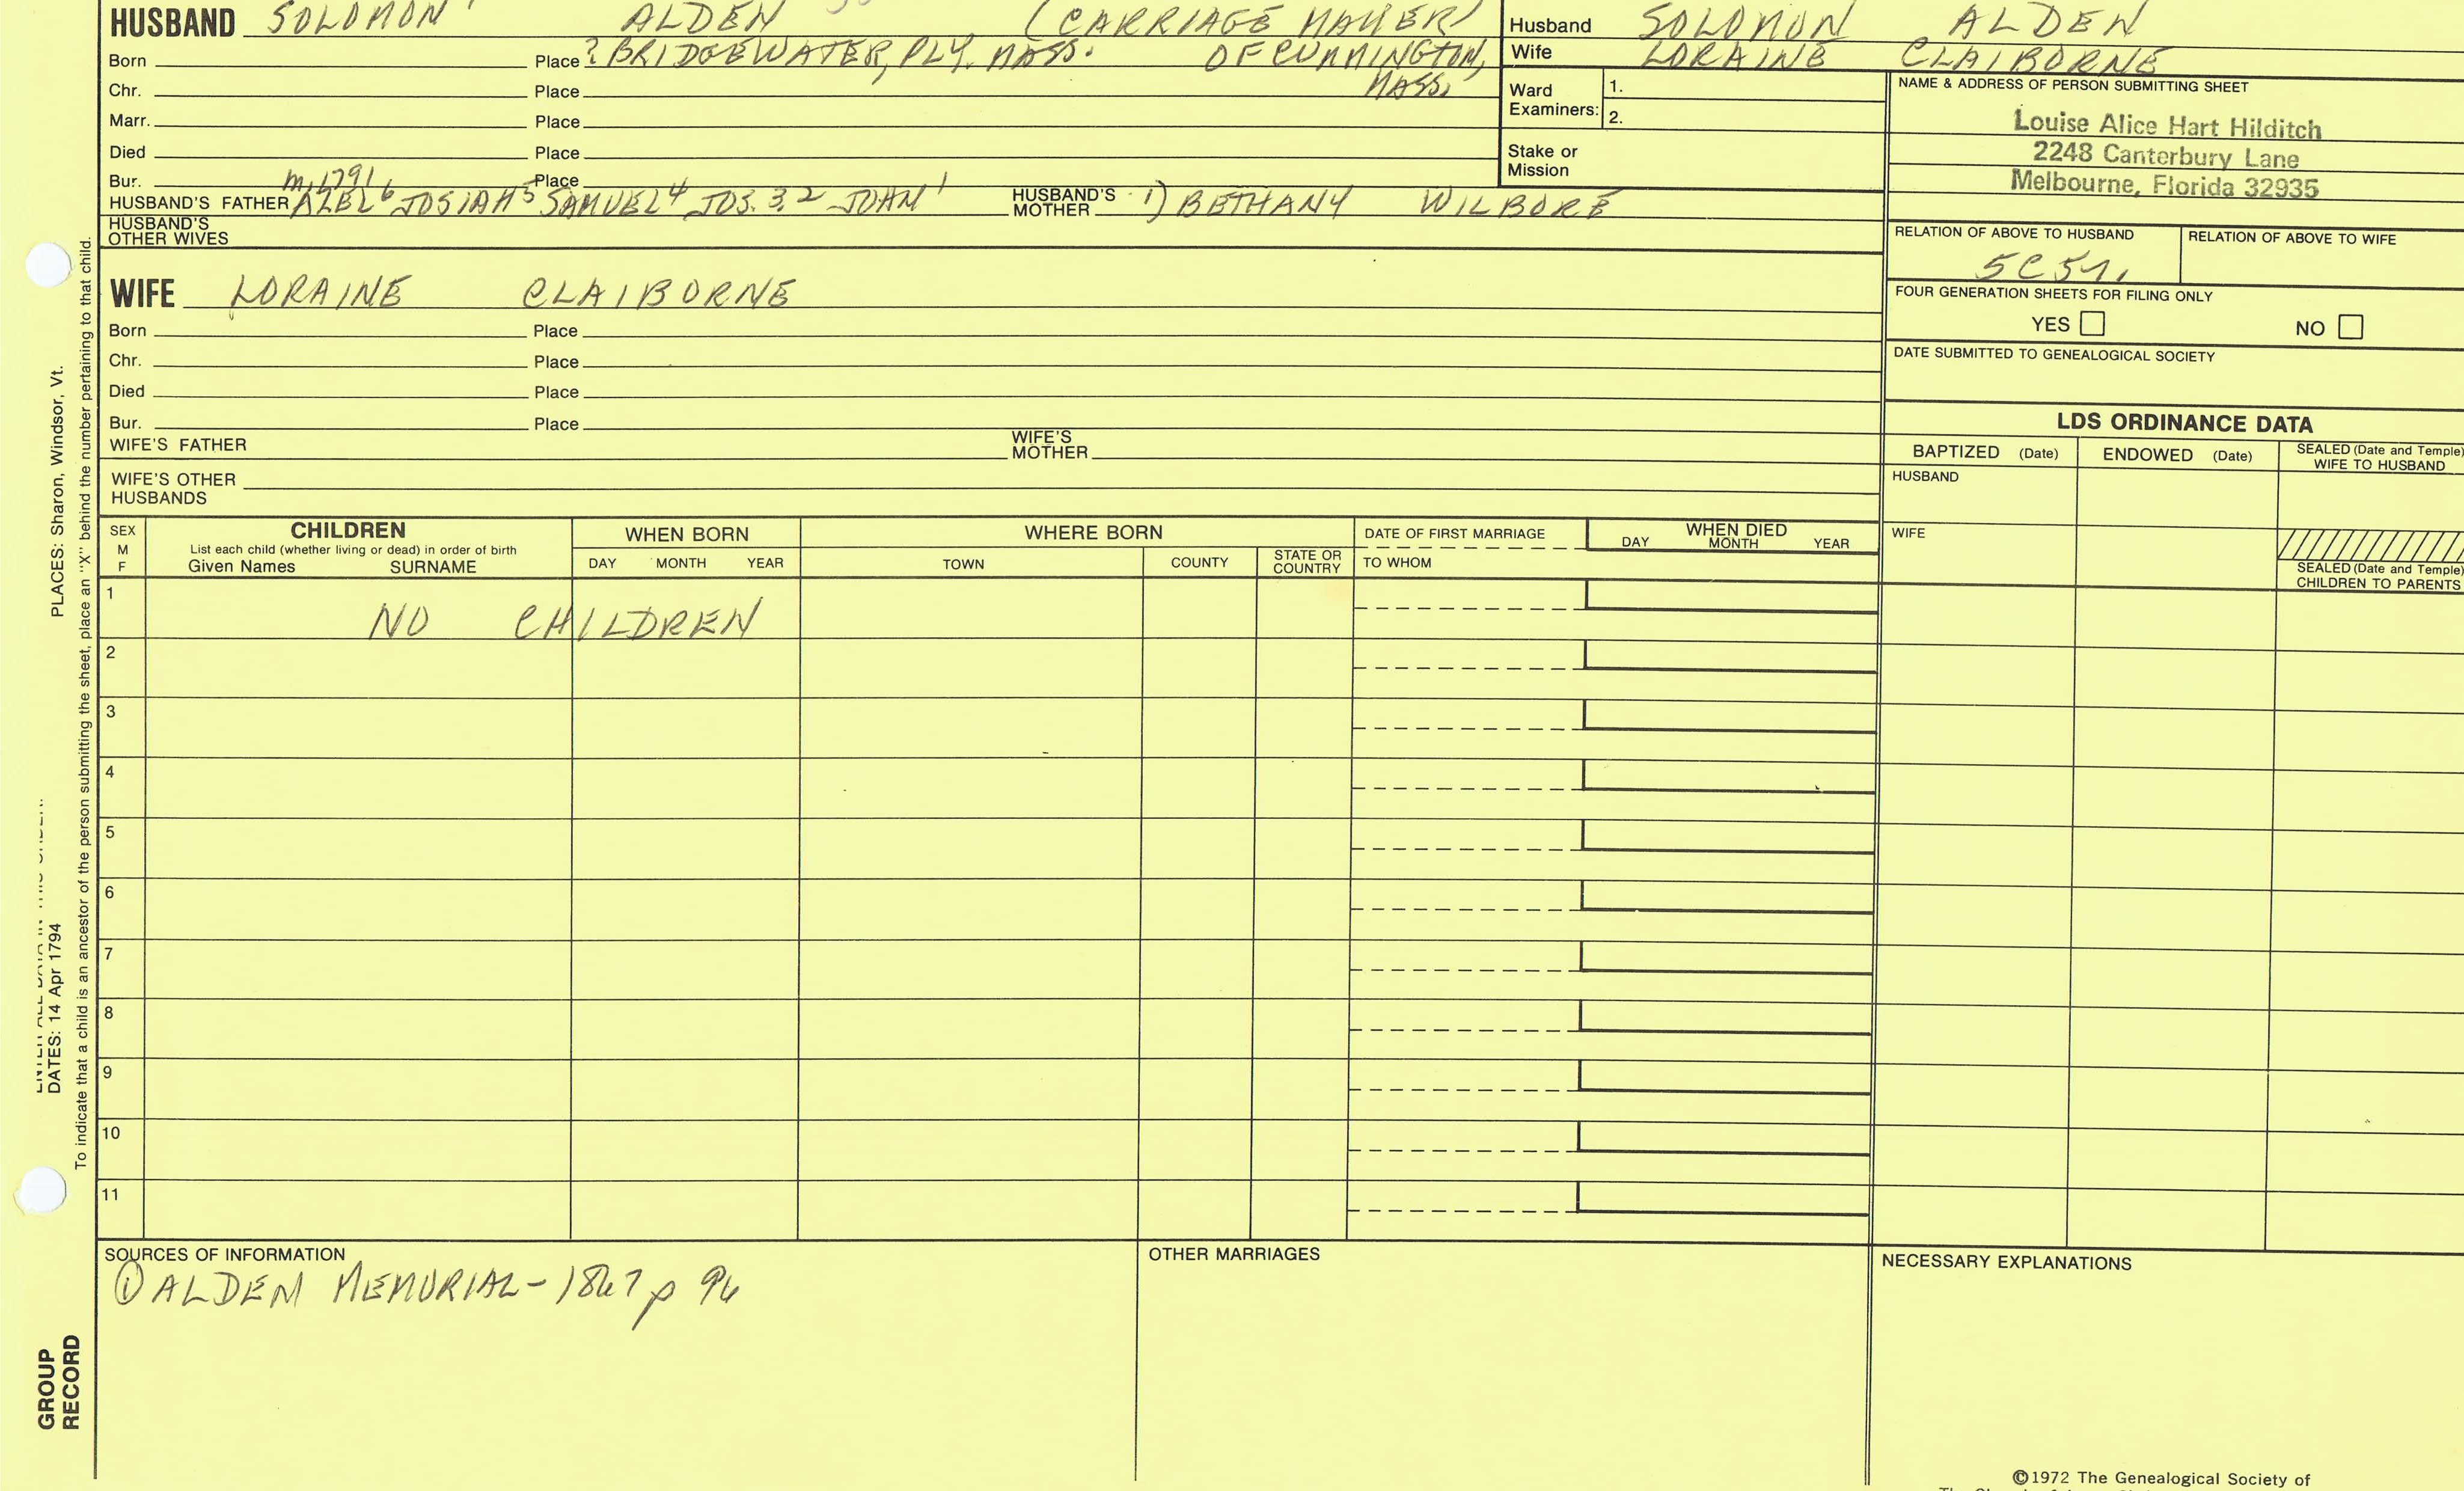 HUSBAND SOLOMON ALDEN (CARRIAGE MAKER)
Born Place ? BRIDGEWATER, PLY. MASS. OF CUMMINGTON,
MASS.
Chr. Place
Marr. Place
Died Place
Bur. Place
m. 1791
HUSBAND'S FATHER AZEL 6 JOSIAH 5 SAMUEL 4 JOS. 3, 2 JOHN 1 HUSBAND'S MOTHER 1) BETHANY WILBORE
HUSBAND'S OTHER WIVES
WIFE LORAINE CLAIBORNE
Born Place
Chr. Place
Died Place
Bur. Place
WIFE'S FATHER WIFE'S MOTHER
WIFE'S OTHER HUSBANDS
Husband SOLOMON ALDEN
Wife LORAINE CLAIBORNE
Ward Examiners: 1.
2.
Stake or Mission
NAME & ADDRESS OF PERSON SUBMITTING SHEET
Louise Alice Hart Hilditch
2248 Canterbury Lane
Melbourne, Florida 32935
RELATION OF ABOVE TO HUSBAND RELATION OF ABOVE TO WIFE
5C5
FOUR GENERATION SHEETS FOR FILING ONLY
YES NO
DATE SUBMITTED TO GENEALOGICAL SOCIETY
LDS ORDINANCE DATA
BAPTIZED (Date) ENDOWED (Date) SEALED (Date and Temple) WIFE TO HUSBAND
HUSBAND
WIFE
SEALED (Date and Temple) CHILDREN TO PARENTS
SEX M F
CHILDREN
List each child (whether living or dead) in order of birth
Given Names SURNAME
WHEN BORN
DAY MONTH YEAR
WHERE BORN
TOWN COUNTY STATE OR COUNTRY
DATE OF FIRST MARRIAGE
TO WHOM
WHEN DIED
DAY MONTH YEAR
1 NO CHILDREN
2
3
4
5
6
7
8
9
10
11
SOURCES OF INFORMATION
① ALDEN MEMORIAL - 1867 p 96
OTHER MARRIAGES
NECESSARY EXPLANATIONS
©1972 The Genealogical Society of
PLACES: Sharon, Windsor, Vt.
DATES: 14 Apr 1794
To indicate that a child is an ancestor of the person submitting the sheet, place an "X" behind the number pertaining to that child.
GROUP
RECORD